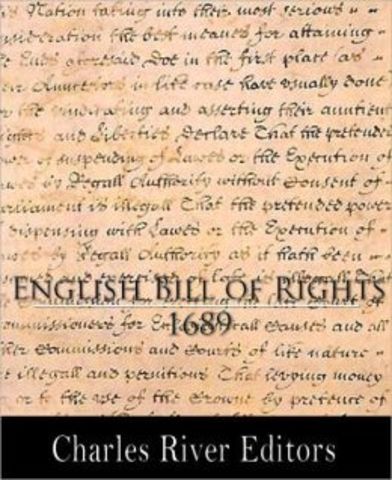 s Nation taking into their most serious =
sideration the best meanes for attaining
he Ends aforesaid Doe in the first place (as
r Auncestors in like case have usually done
r the vindicating and asserting their auntient
ghts and Liberties Declare That the pretended
wer of suspending of Lawes or the Execution of
wes by Regall Authority without Consent of
arliament is illegall That the pretended power
dispensing with Lawes or the Execution of
wes by Regall Authority as it hath been
and of late is illegall That
English Bill of Rights
1689
ommissioners for Causes and all
ther Commissions and Courts of like nature
e illegall and pernitious That levying money
r or to the use of the Crowne by pretence of
Charles River Editors